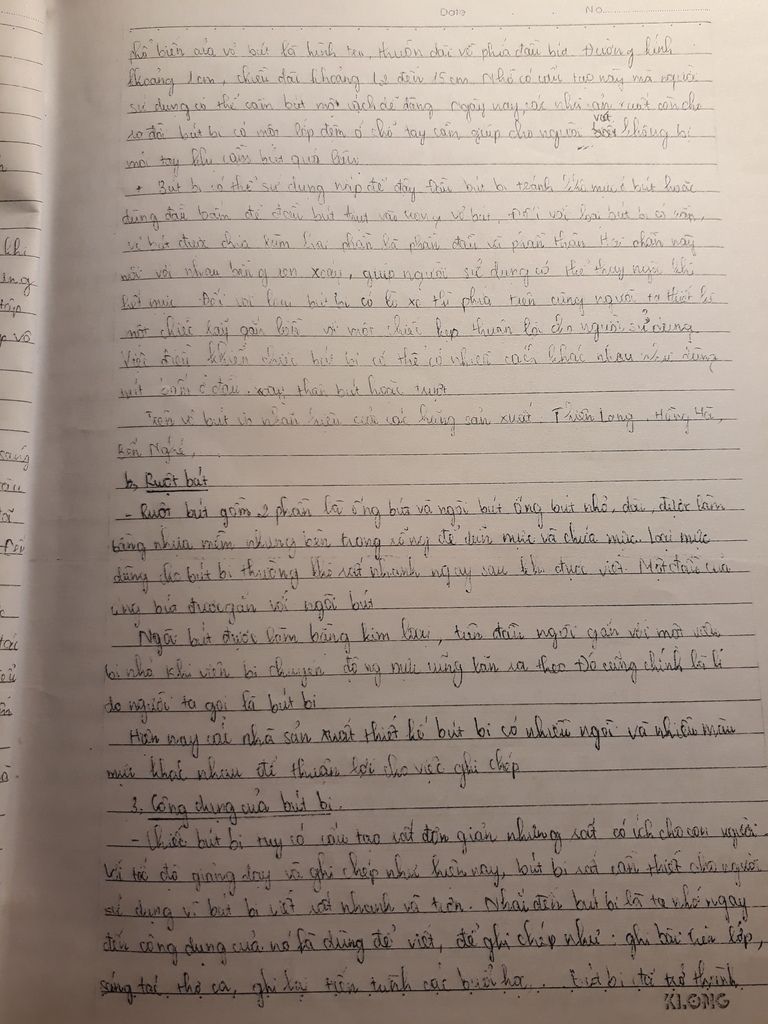 Date No
phổ biến của vỏ bút là hình trụ, thuôn dài về phía đầu bút. Đường kính
khoảng 1cm, chiều dài khoảng 12 đến 15cm. Nhờ có cấu tạo này mà người
sử dụng có thể cầm bút một cách dễ dàng. Ngày nay, các nhà sản xuất còn cho
ra đời bút bi có một lớp đệm ở chỗ tay cầm giúp cho người viết không bị
mỏi tay khi cầm bút quá lâu.
+ Bút bi có thể sử dụng nắp để đậy đầu bút bi tránh khô mực ở bút hoặc
dùng đầu bấm để đầu bút thụt vào trong vỏ bút. Đối với loại bút bi có nắp,
vỏ bút được chia làm hai phần là phần đầu và phần thân. Hai phần này
nối với nhau bằng ren xoay, giúp người sử dụng có thể thay ngòi khi
hết mực. Đối với loại bút bi có lò xo thì phía trên cùng người ta thiết kế
một chiếc gắn liền với một chiếc kẹp thuận lợi cho người sử dụng.
Việc điều khiển chiếc bút bi có thể có nhiều cách khác nhau như dùng
nút bấm ở đầu, xoay thân bút hoặc trượt
Trên vỏ bút có nhãn hiệu của các hãng sản xuất: Thiên Long, Hồng Hà,
Bến Nghé,
b, Ruột bút
- Ruột bút gồm 2 phần là ống bút và ngòi bút. Ống bút nhỏ, dài, được làm
bằng nhựa mềm nhưng bên trong rỗng để dẫn mực và chứa mực. Loại mực
dùng cho bút bi thường khô rất nhanh ngay sau khi được viết. Một đầu của
ống bút được gắn với ngòi bút
Ngòi bút được làm bằng kim loại, trên đầu ngòi gắn với một viên
bi nhỏ. Khi viên bi chuyển động mực cũng lăn ra theo. Đó cũng chính là lí
do người ta gọi là bút bi
Hiện nay các nhà sản xuất thiết kế bút bi có nhiều ngòi và nhiều màu
mực khác nhau để thuận lợi cho việc ghi chép
3. Công dụng của bút bi.
- Chiếc bút bi tuy có cấu tạo rất đơn giản nhưng rất có ích cho con người
Với tốc độ giảng dạy và ghi chép như hiện nay, bút bi rất cần thiết cho người
sử dụng vì bút bi viết rất nhanh và tiện. Nhắc đến bút bi là ta nhớ ngay
đến công dụng của nó là dùng để viết, để ghi chép như: ghi bài trên lớp,
sáng tác thơ ca, ghi lại tiến trình các buổi họp. Bút bi đã trở thành
KLONG